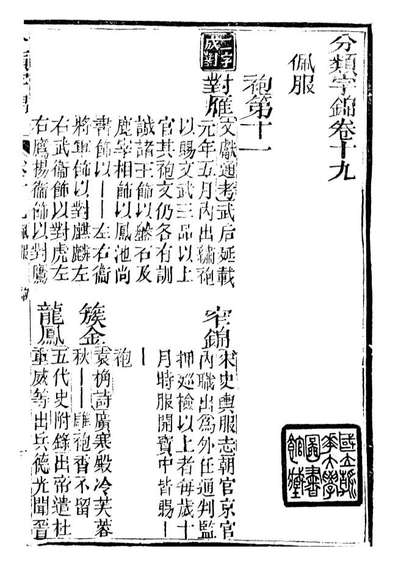 分類字錦卷十九
佩服
袍第十一
二字成對
對雁
文獻通考武后延載
元年五月內出繡袍
以賜文武三品以上
官其袍文仍各有訓
誡諸王飾以盤石及
鹿宰相飾以鳳池尚
書飾以丨丨左右衞
將軍飾以對麒麟左
右武衞飾以對虎左
右鷹揚衞飾以對鷹
窄錦
宋史輿服志朝官京官
內職出爲外任通判監
押巡檢以上者每歲十
月時服開寶中皆賜丨
丨袍
簇金
袁桷詩廣寒殿冷芙蓉
秋丨丨雕袍香不留
龍鳳
五代史附錄出帝遣杜
重威等出兵德光聞晉
國立清
華大學
圖書
館藏